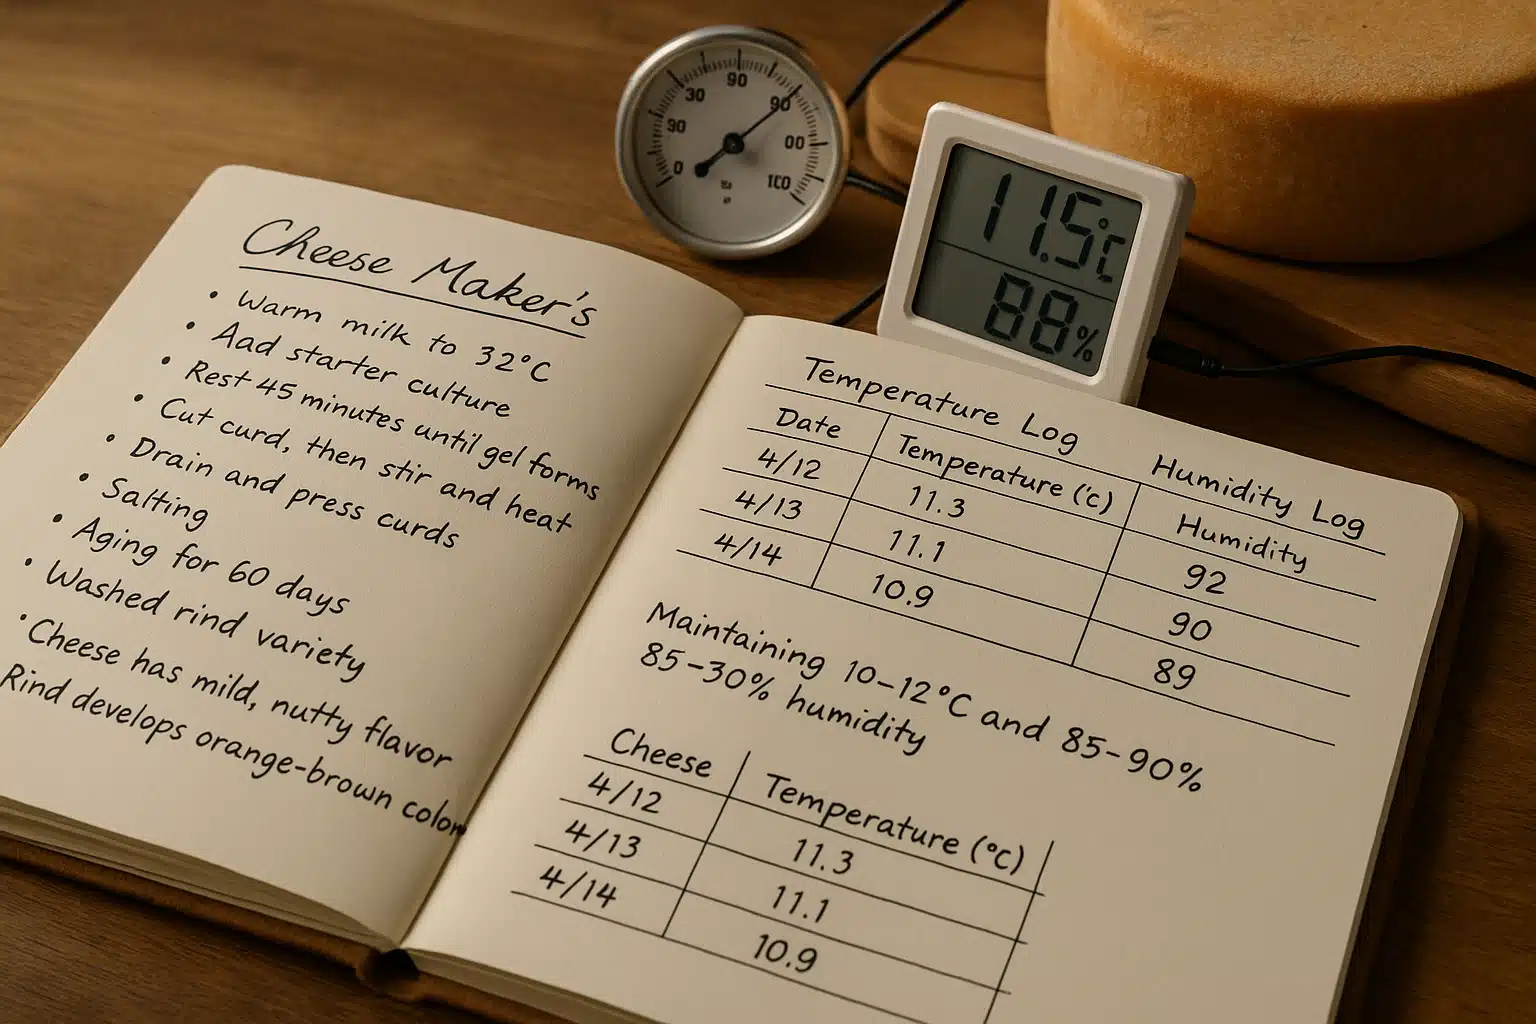 Cheese Maker's
• Warm milk to 32°C
• Aad starter culture
• Rest 45 minutes until gel forms
• Cut curd, then stir and heat
• Drain and press curds
• Salting
• Aging for 60 days
• Washed rind variety
• Cheese has mild, nutty flavor
Rind develops orange-brown color
0
90
30
90
90
00
100
11.5°C
88%
Temperature Log
Humidity Log
Date Temperature (°c) Humidity
4/12 11.3 92
4/13 11.1 90
4/14 10.9 89
Maintaining 10-12°C and 85-90%
85-30% humidity
Cheese Temperature (°C)
4/12 11.3
4/13 11.1
4/14 10.9